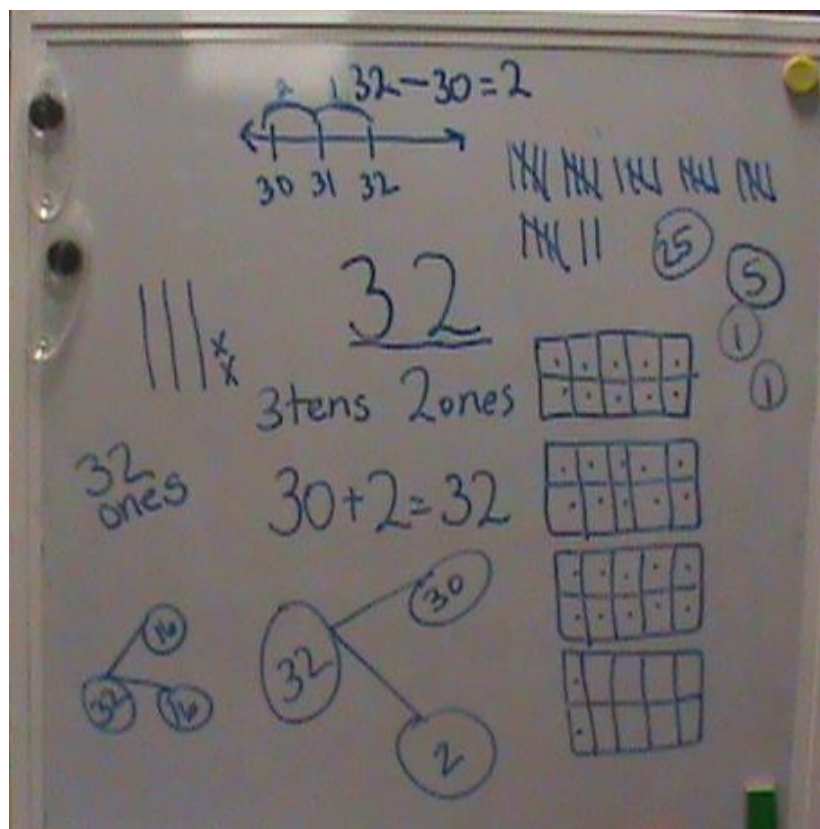 2 1 32-30=2
30 31 32
25
5
32
1
1
3tens 2ones
32
ones
30+2=32
30
16
32
32
16
2